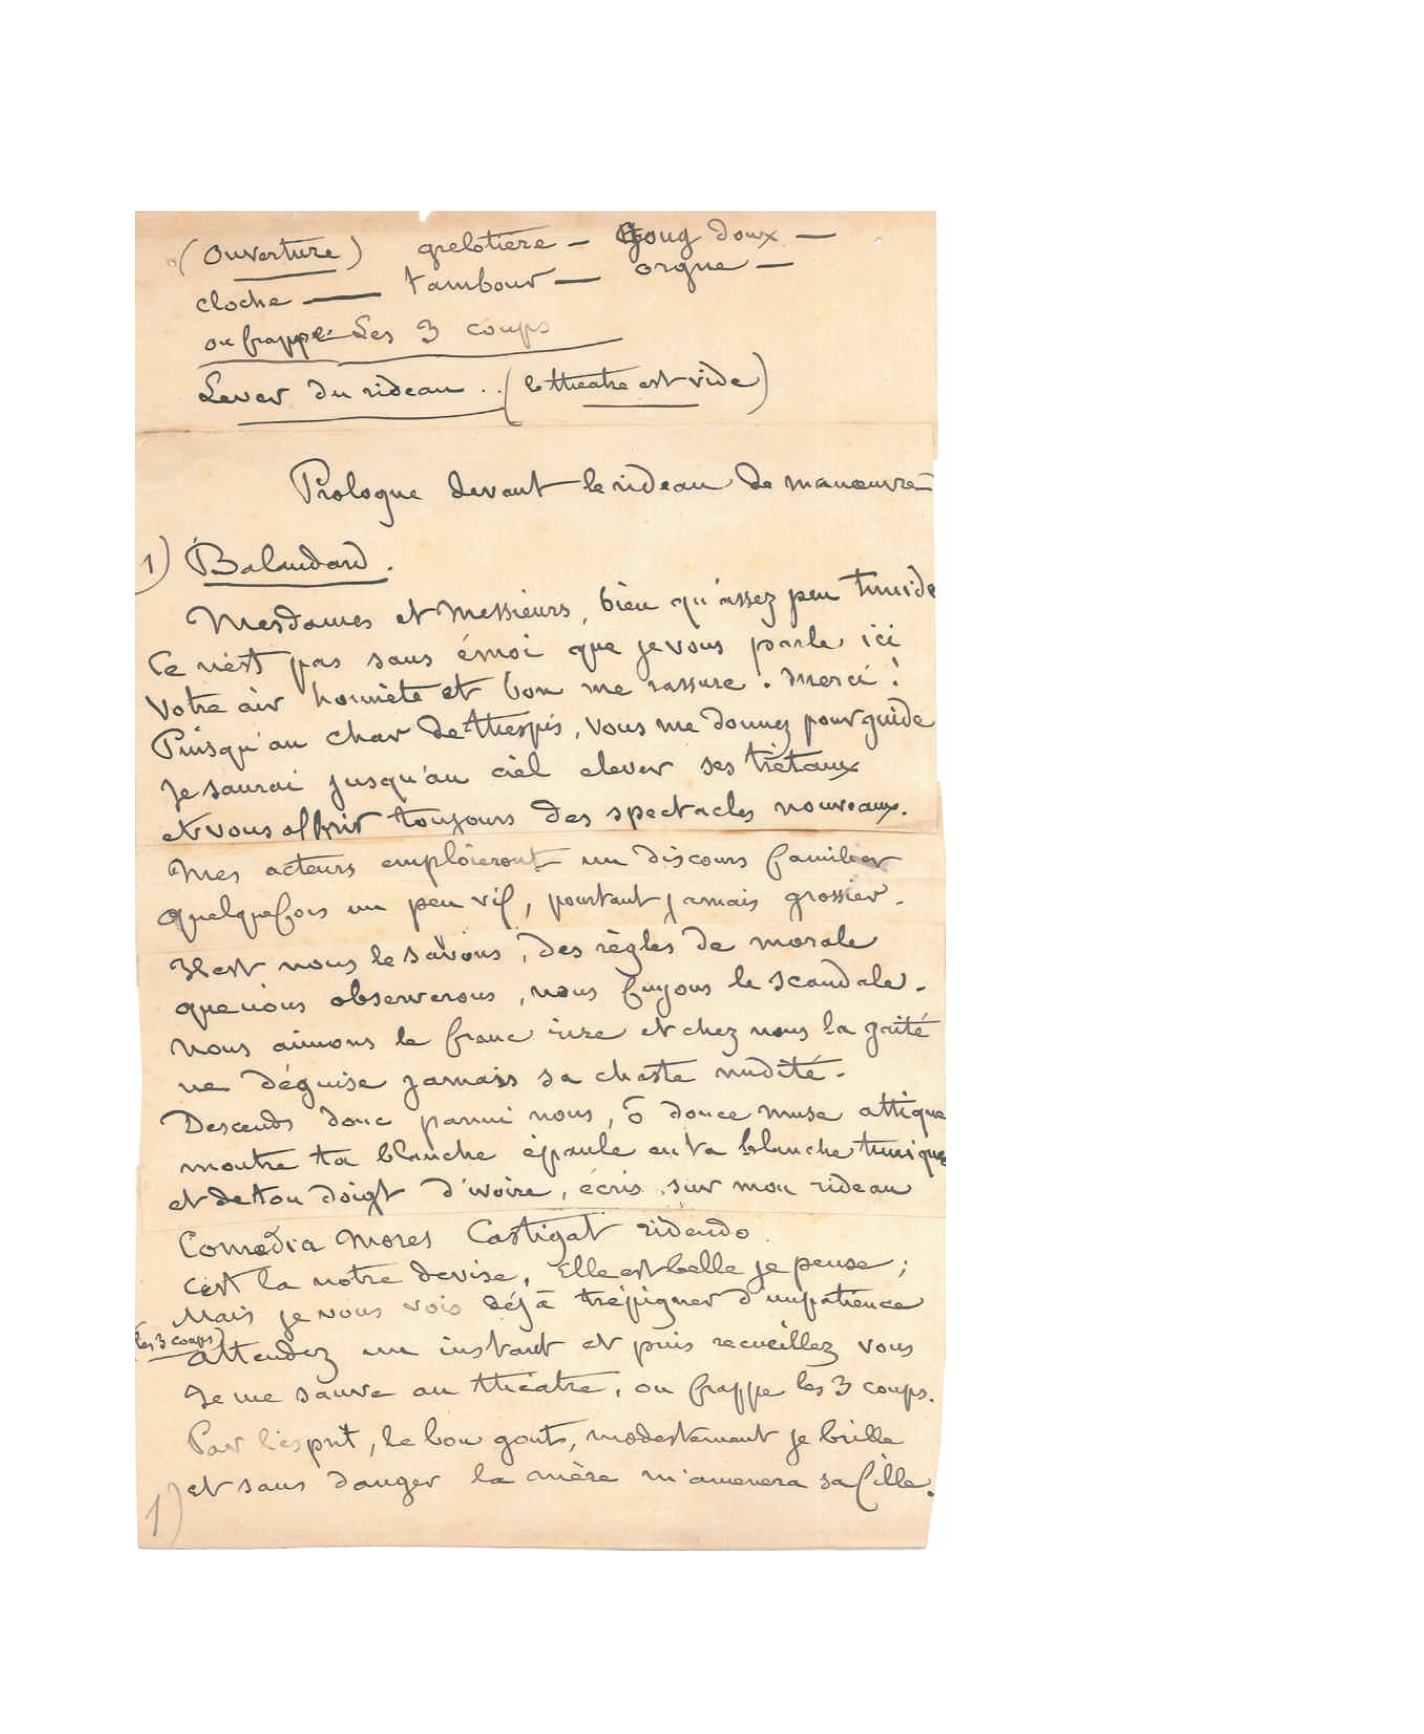 (Ouverture) grelotière — Gong doux —
cloche — tambour — orgue —
on frappe les 3 coups
Lever du rideau .. (le theatre est vide)
Prologue devant le rideau de manœuvre —
1) Balandard.
Mesdames et Messieurs, bien qu'assez peu timide
Ce n'est pas sans émoi que je vous parle ici
Votre air honnête et bon me rassure. Merci!
Puisqu'au char de thespis, vous me donnez pour guide
Je saurai jusqu'au ciel elever ses trétaux
et vous offrir toujours des spectacles nouveaux.
Mes acteurs emploieront un discours familier
quelquefois un peu vif, pourtant jamais grossier.
Il est nous le savons, des règles de morale
que nous observerons, nous fuyons le scandale.
Nous aimons le franc rire et chez nous la gaité
ne déguise jamais sa chaste nudité.
Descends donc parmi nous, ô douce muse attique
montre ta blanche épaule en ta blanche tunique
et de ton doigt d'ivoire, écris sur mon rideau
Comœdia Mores Castigat ridendo
C'est là notre devise, Elle est belle je pense;
Mais je vous vois déjà trépigner d'impatience
(les 3 coups) attendez un instant et puis recueillez vous
Je me sauve au théatre, on frappe les 3 coups.
Par l'esprit, le bon gout, modestement je brille
et sans danger la mère m'amenera sa fille.
1)